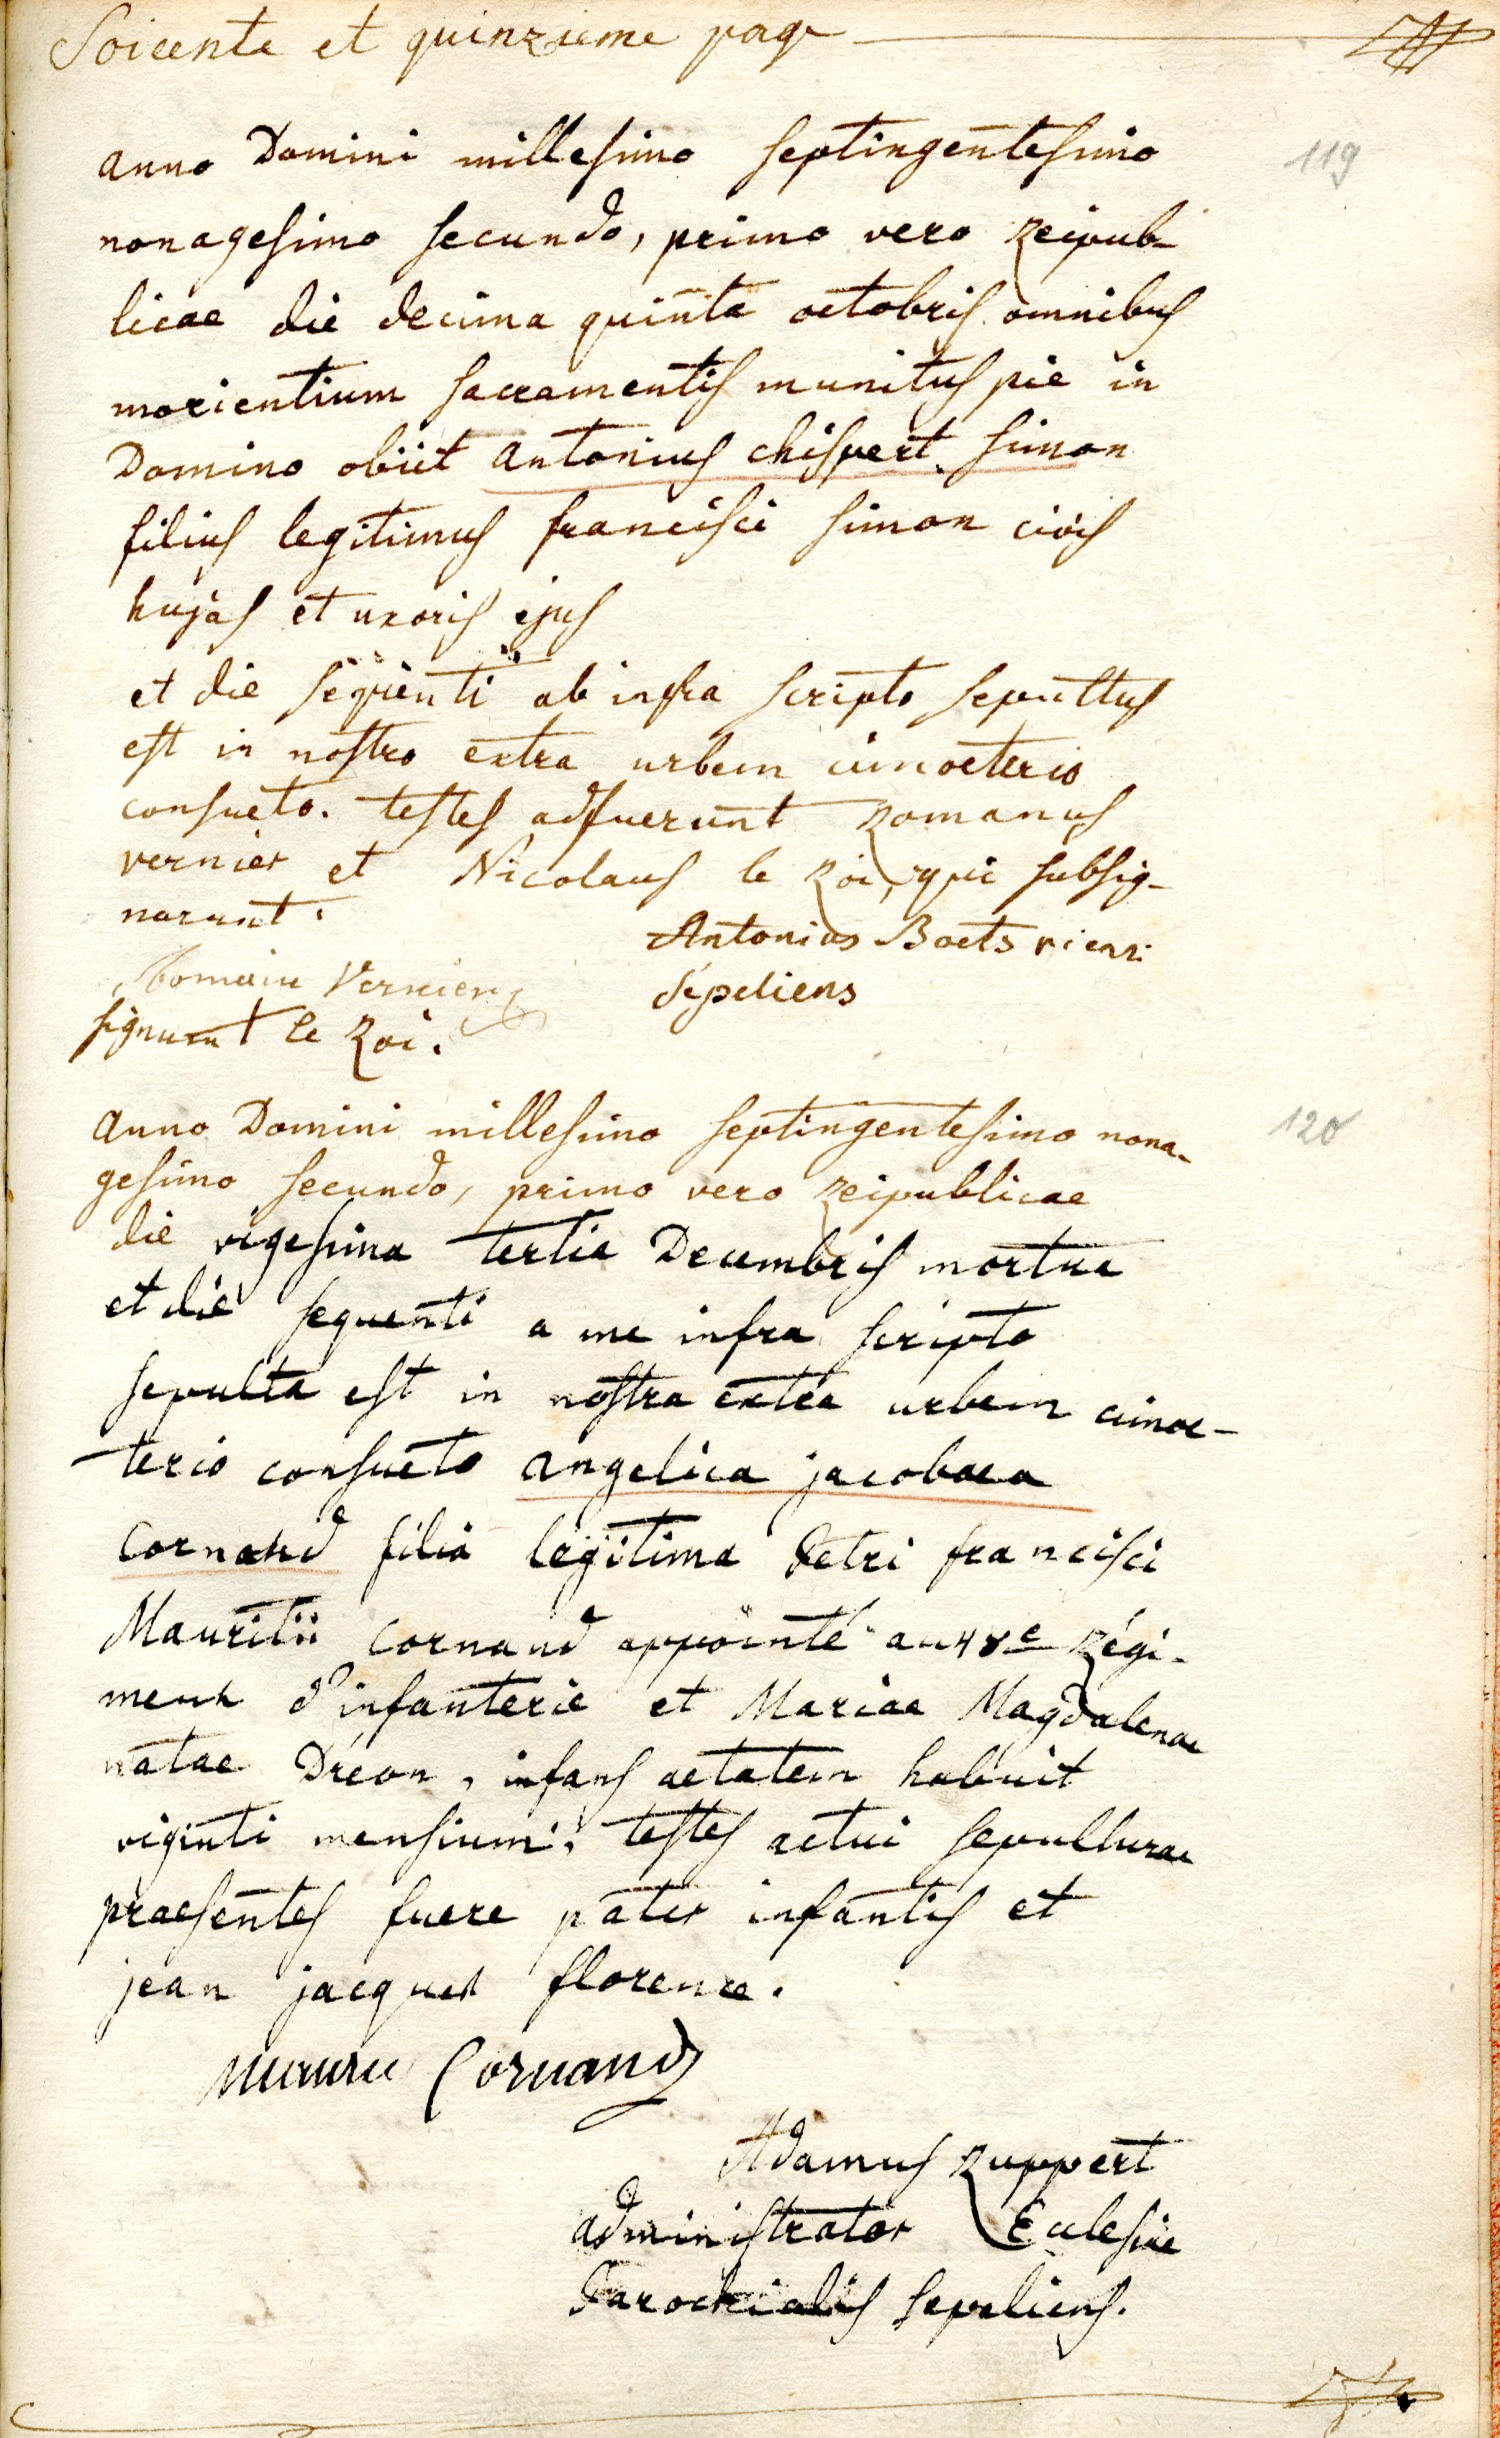 Soicente et quinzieme page
anno Domini millesimo septingentesimo
119
nonagesimo secundo, primo vero Reipub-
licae die decima quinta octobris omnibus
morientium sacramentis munitus pie in
Domino obiit antonius chisvert simon
filius legitimus francisci simon civis
hujas et uxoris ejus
et die sequenti ab infra scripto sepultus
est in nostro extra urbem cimoeterio
consueto. testes adfuerunt Romanus
vernier et Nicolaus le Roi, qui subsig-
narunt.
Antonius Boets vicar:
Sepeliens
Romain Vernier
signum t le Roi.
anno Domini millesimo septingentesimo nona-
120
gesimo secundo, primo vero Reipublicae
die vigesima tertia Decembris mortua
et die sequenti a me infra scripto
sepulta est in nostra extra urbem cimoe-
terio consueto angelica jacobaea
Cornand filia legitima Petri francisci
Mauritii Cornand appointé au 48e Régi-
ment d'infanterie et Mariae Magdalenae
natae Dréon, infans aetatem habuit
viginti mensium. testes actui sepulturae
praesentes fuere pater infantis et
jean jacques florence.
Cornand
Adamus Ruppert
administrator Ecclesiae
Parochialis sepeliens.